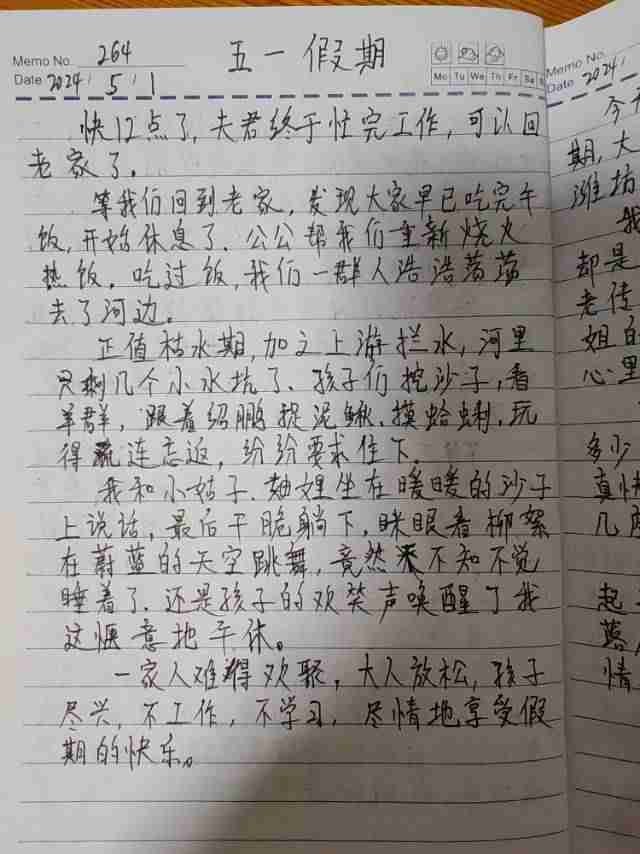 Memo No. 264
Date 2024 / 5 / 1
五一假期
Mo Tu We Th Fr Sa
快12点了,夫君终于忙完工作,可以回
老家了。
等我们回到老家,发现大家早已吃完午
饭,开始休息了.公公帮我们重新烧火
热饭。吃过饭,我们一群人浩浩荡荡
去了河边。
正值枯水期,加之上游拦水,河里
只剩几个小水坑了.孩子们挖沙子,看
羊群,跟着绍鹏捉泥鳅.摸蛤蜊.玩
得流连忘返,纷纷要求住下.
我和小姑子.妯娌坐在暖暖的沙子
上说话,最后干脆躺下,眯眼看柳絮
在蔚蓝的天空跳舞,竟然不知不觉
睡着了.还是孩子的欢笑声唤醒了我
这惬意地午休。
一家人难得欢聚,大人放松,孩子
尽兴,不工作,不学习,尽情地享受假
期的快乐。
Memo No.
Date 2024 /
期,大
潍坊
我
却是
老传
姐的
心里
多少
真快
几度
起
落
情